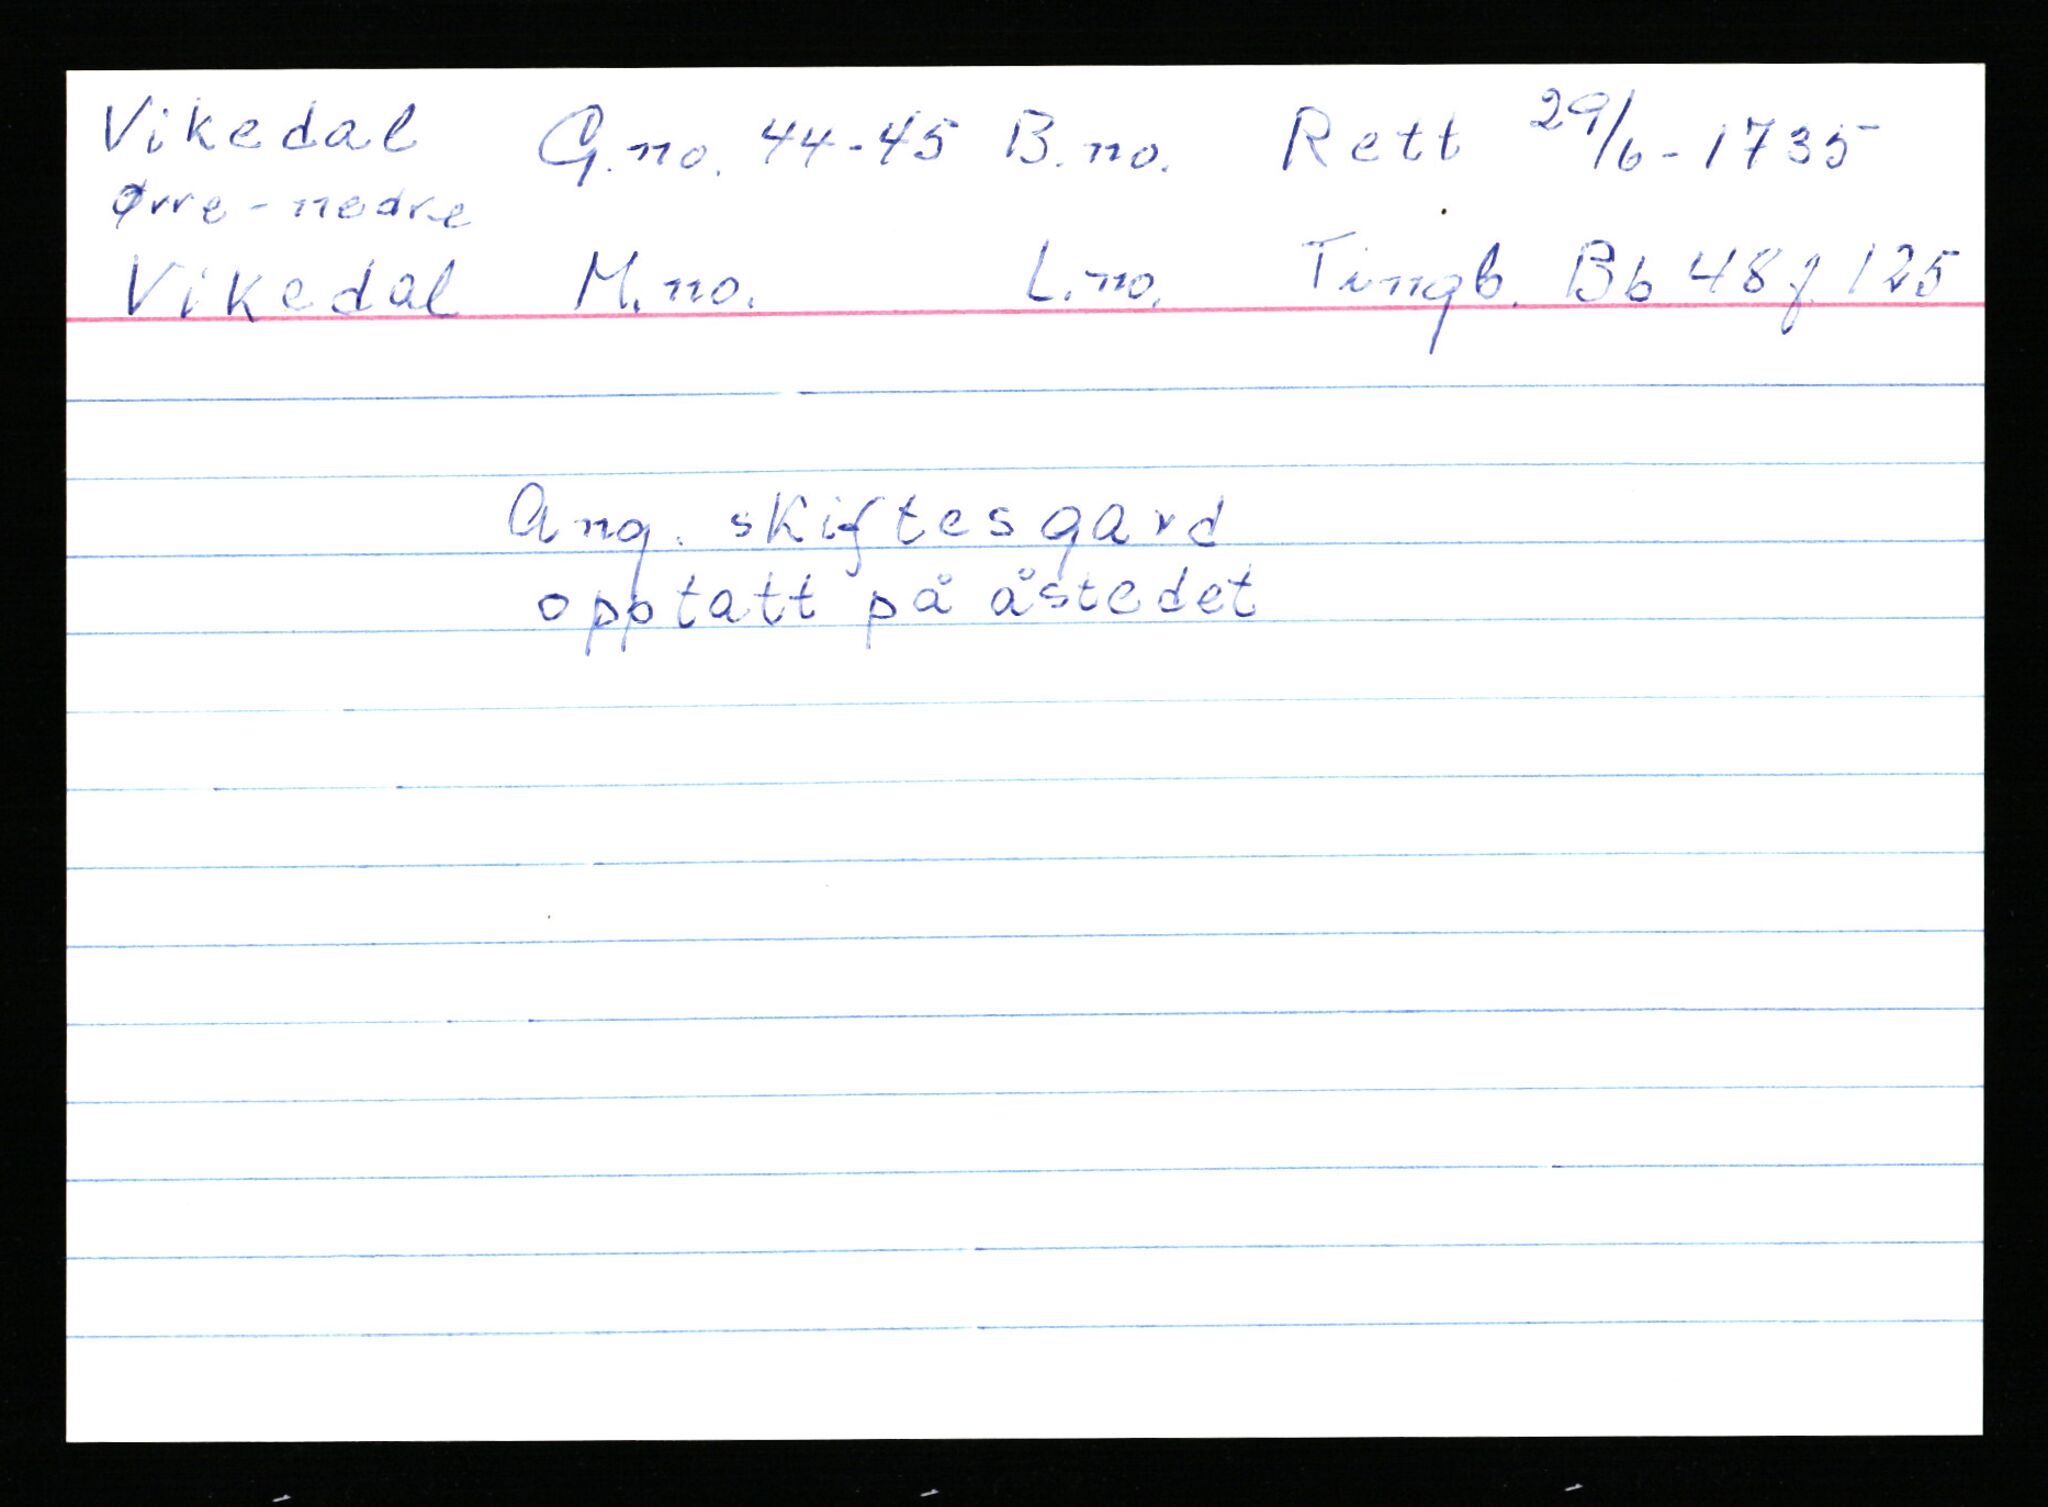 Vikedal G.no. 44-45 B.no. Rett 29/6-1735
Ørre-nedre
Vikedal M.no. L.no. Tingb. Bb 48 f 125
Ang. skiftesgard
opptatt på åstedet